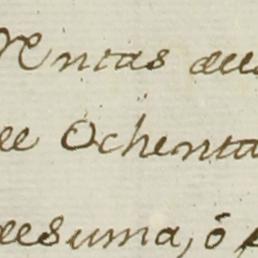 Rentas dels
de Ochenta
desuma, ó